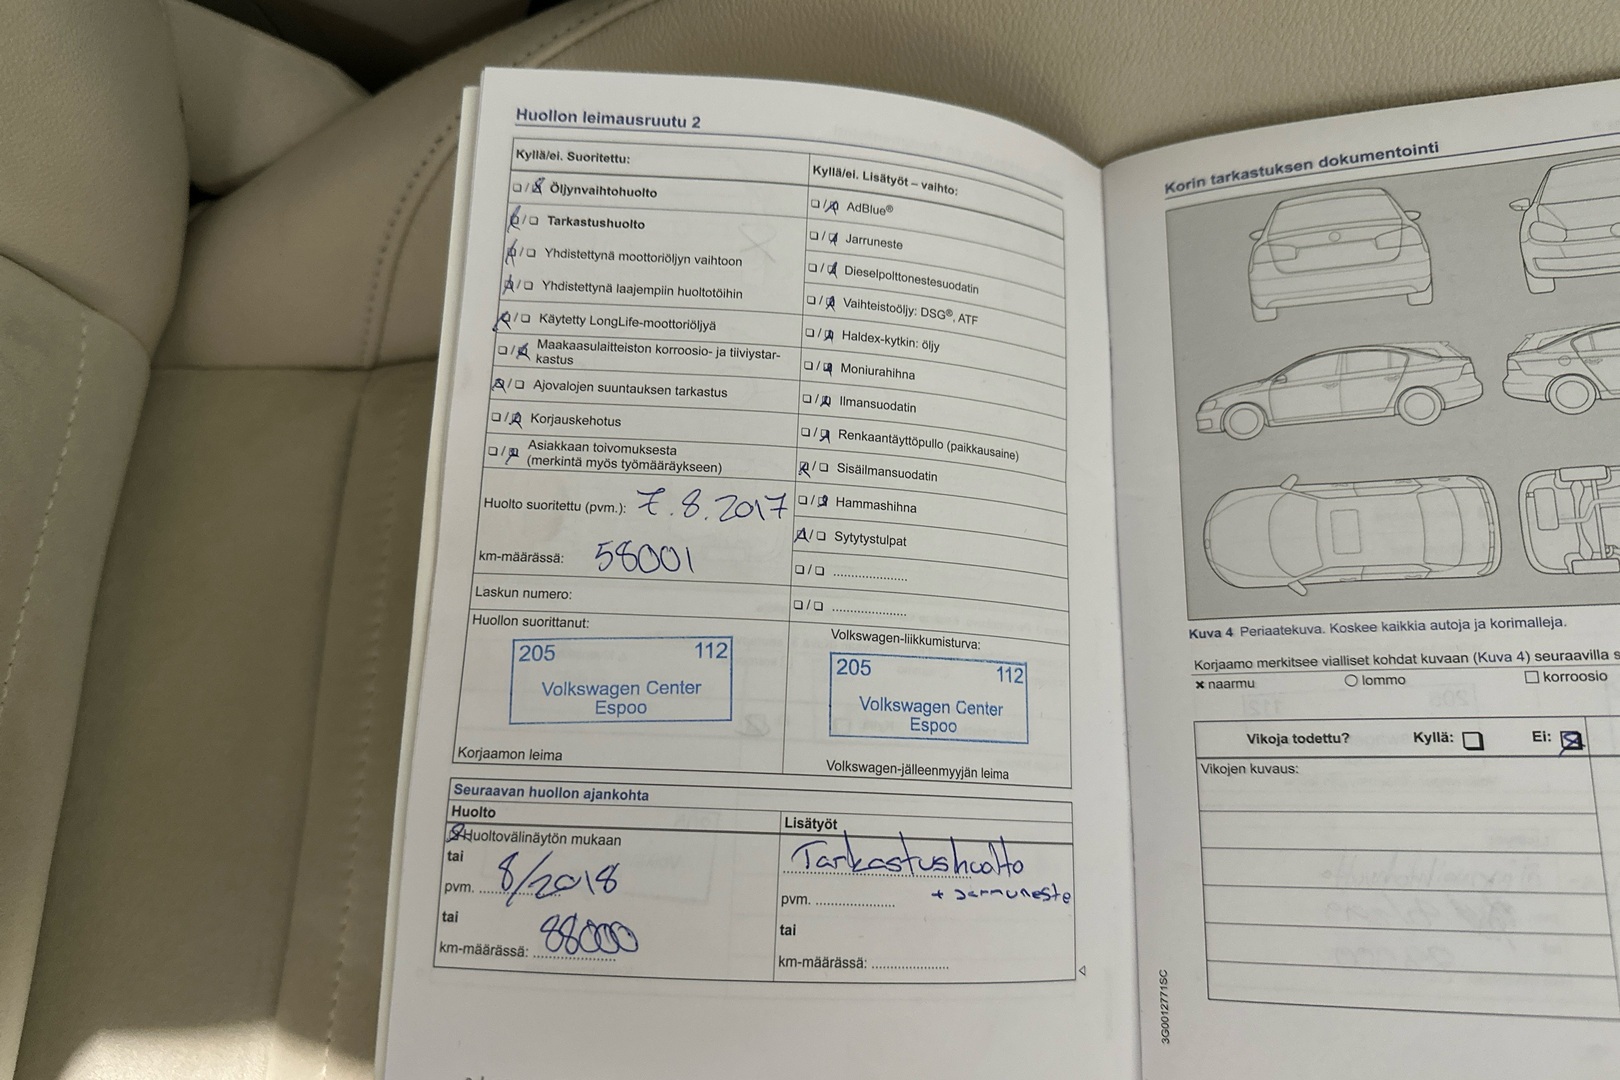 Huollon leimausruutu 2
Kyllä/ei. Suoritettu:
Öljynvaihtohuolto
Tarkastushuolto
Yhdistettynä moottoriöljyn vaihtoon
Yhdistettynä laajempiin huoltotöihin
Käytetty LongLife-moottoriöljyä
Maakaasulaitteiston korroosio- ja tiiviystar-
kastus
Ajovalojen suuntauksen tarkastus
Korjauskehotus
Asiakkaan toivomuksesta
(merkintä myös työmääräykseen)
Huolto suoritettu (pvm.): 7.8.2017
km-määrässä: 58001
Laskun numero:
Huollon suorittanut:
205 112
Volkswagen Center
Espoo
Korjaamon leima
Kyllä/ei. Lisätyöt – vaihto:
AdBlue®
Jarruneste
Dieselpolttonestesuodatin
Vaihteistoöljy: DSG®, ATF
Haldex-kytkin: öljy
Moniurahihna
Ilmansuodatin
Renkaantäyttöpullo (paikkausaine)
Sisäilmansuodatin
Hammashihna
Sytytystulpat
Volkswagen-liikkumisturva:
205 112
Volkswagen Center
Espoo
Volkswagen-jälleenmyyjän leima
Seuraavan huollon ajankohta
Huolto
Huoltovälinäytön mukaan
tai
pvm. 8/2018
tai
km-määrässä: 88000
Lisätyöt
Tarkastushuolto
+ Jarruneste
pvm.
tai
km-määrässä:
Korin tarkastuksen dokumentointi
Kuva 4 Periaatekuva. Koskee kaikkia autoja ja korimalleja.
Korjaamo merkitsee vialliset kohdat kuvaan (Kuva 4) seuraavilla
naarmu lommo korroosio
Vikoja todettu? Kyllä: Ei:
Vikojen kuvaus:
3G0012771SC